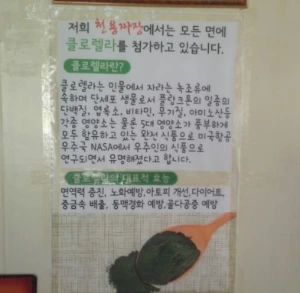 저희 천봉짜장에서는 모든 면에
클로렐라를 첨가하고 있습니다.
클로렐라란?
클로렐라는 민물에서 자라는 녹조류에
속하며 단세포 생물로서 플랑크톤의 일종의
단백질, 엽록소, 비타민, 무기질, 아미노산등
각종 영양소는 물론 5대 영양소가 풍부하게
모두 함유하고 있는 완전 식품으로 미국항공
우주국 NASA에서 우주인의 식품으로
연구되면서 유명해졌다고 합니다.
클로렐라의 대표적 효능
면역력 증진, 노화예방,아토피 개선,다이어트,
중금속 배출, 동맥경화 예방,골다공증 예방